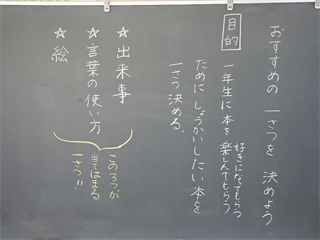 おすすめの 一さつを 決めよう
目的
好きになってもらう
一年生に本を 楽しんでもらう
ために しょうかいしたい本を
一さつ 決める.
☆出来事
☆言葉の使い方
☆絵
この3つが
当てはまる
一さつ!!